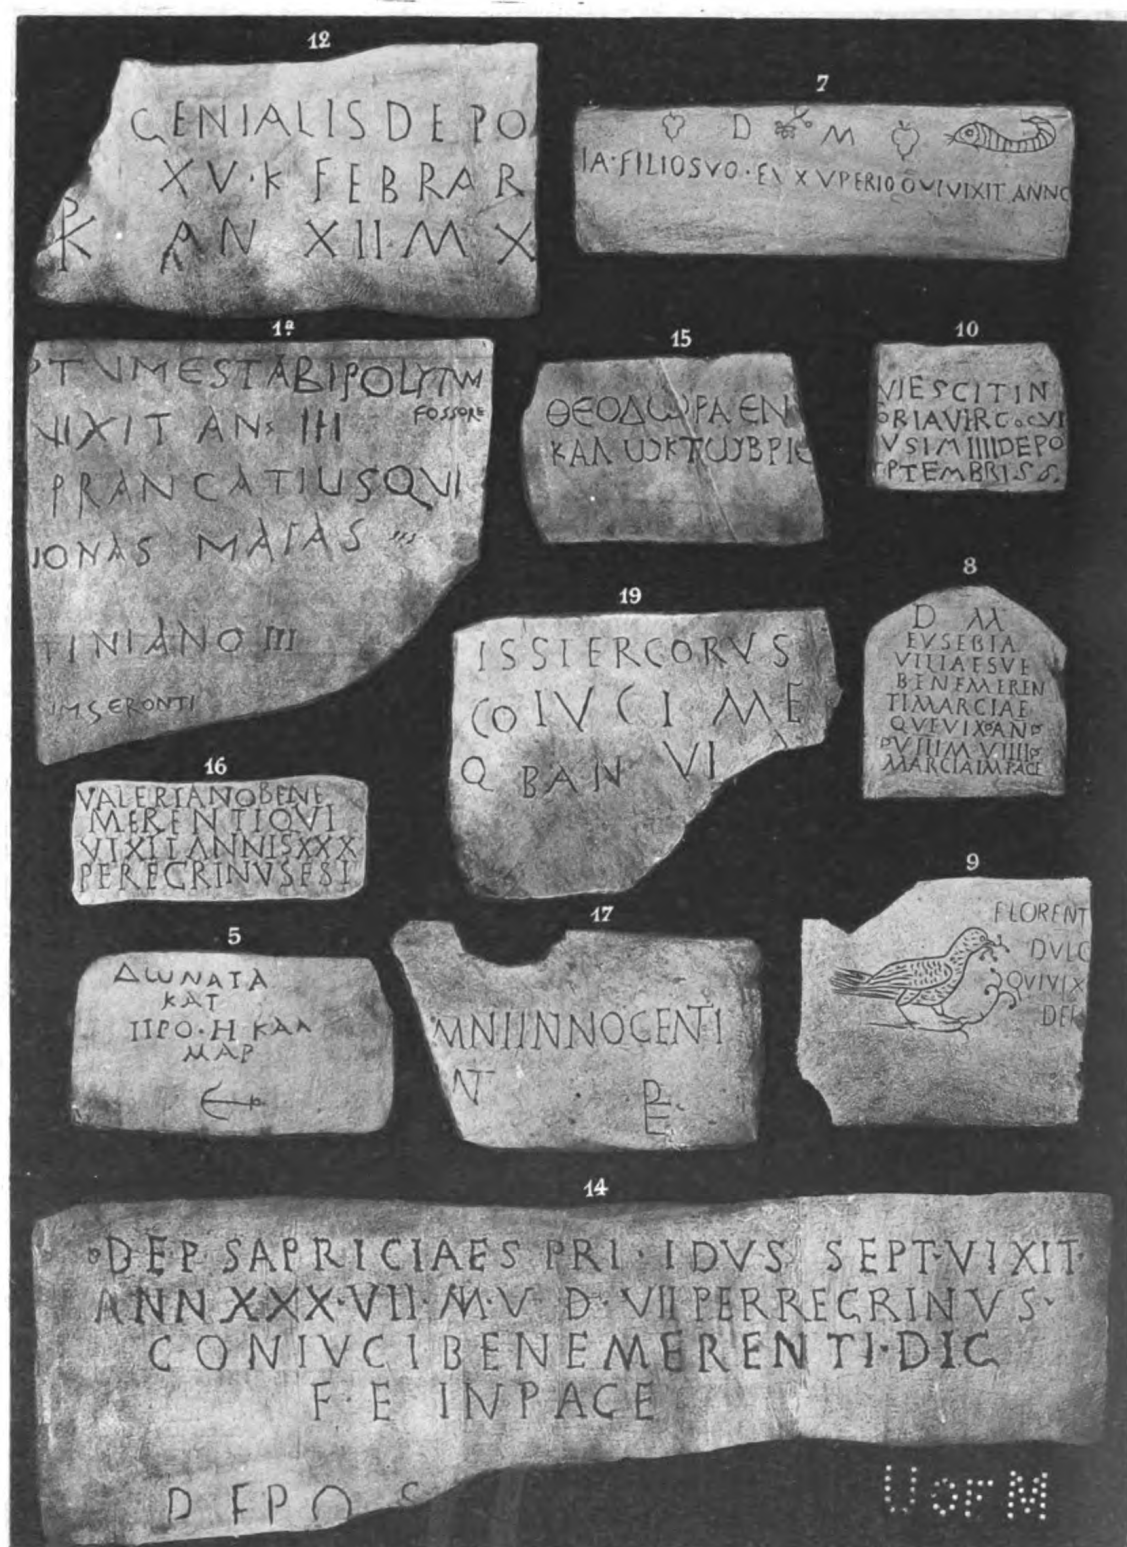 12
GENIALIS DEPO
XV·K FEBRAR
AN XII·M X
7
D M
IA·FILIOSVO·EVXVPERIOQVIVIXIT ANNO
1ª
PTVMESTABIPOLYTVM
FOSSORE
VIXIT AN III
PRANCATIUSQVI
NONAS MAIAS
TINIANO III
IMSERONTI
15
ΘΕΟΔωΡΑ ΕΝ
ΚΑΛ ωΚΤωΒΡΙ
10
VIESCITIN
ORIAVIRGOQVI
VSIMIIIIDEPO
PTEMBRIS
19
ISSTERCORVS
COIVGI ME
Q BAN VI
8
D M
EVSEBIA
VILIAESVE
BENEMEREN
TIMARCIAE
QVEVIX AN
VIIIM VIIII
MARCIAIMPACE
16
VALERIANOBENE
MERENTIQVI
VIXITANNISXXX
PEREGRINVSESI
5
ΔωΝΑΤΑ
ΚΑΤ
ΠΡΟ·Η ΚΑΛ
ΜΑΡ
17
MNIINNOCENTI
NT
DE
9
FLORENT
DVLC
QVIVIX
DEP
14
DEP SAPRICIAES PRI·IDVS SEPT·VIXIT·
ANN XXX·VII·M·V D·VII PERREGRINVS·
CONIVGIBENEMERENTI·DIG
F·E INPACE
DEPOS
U OF M